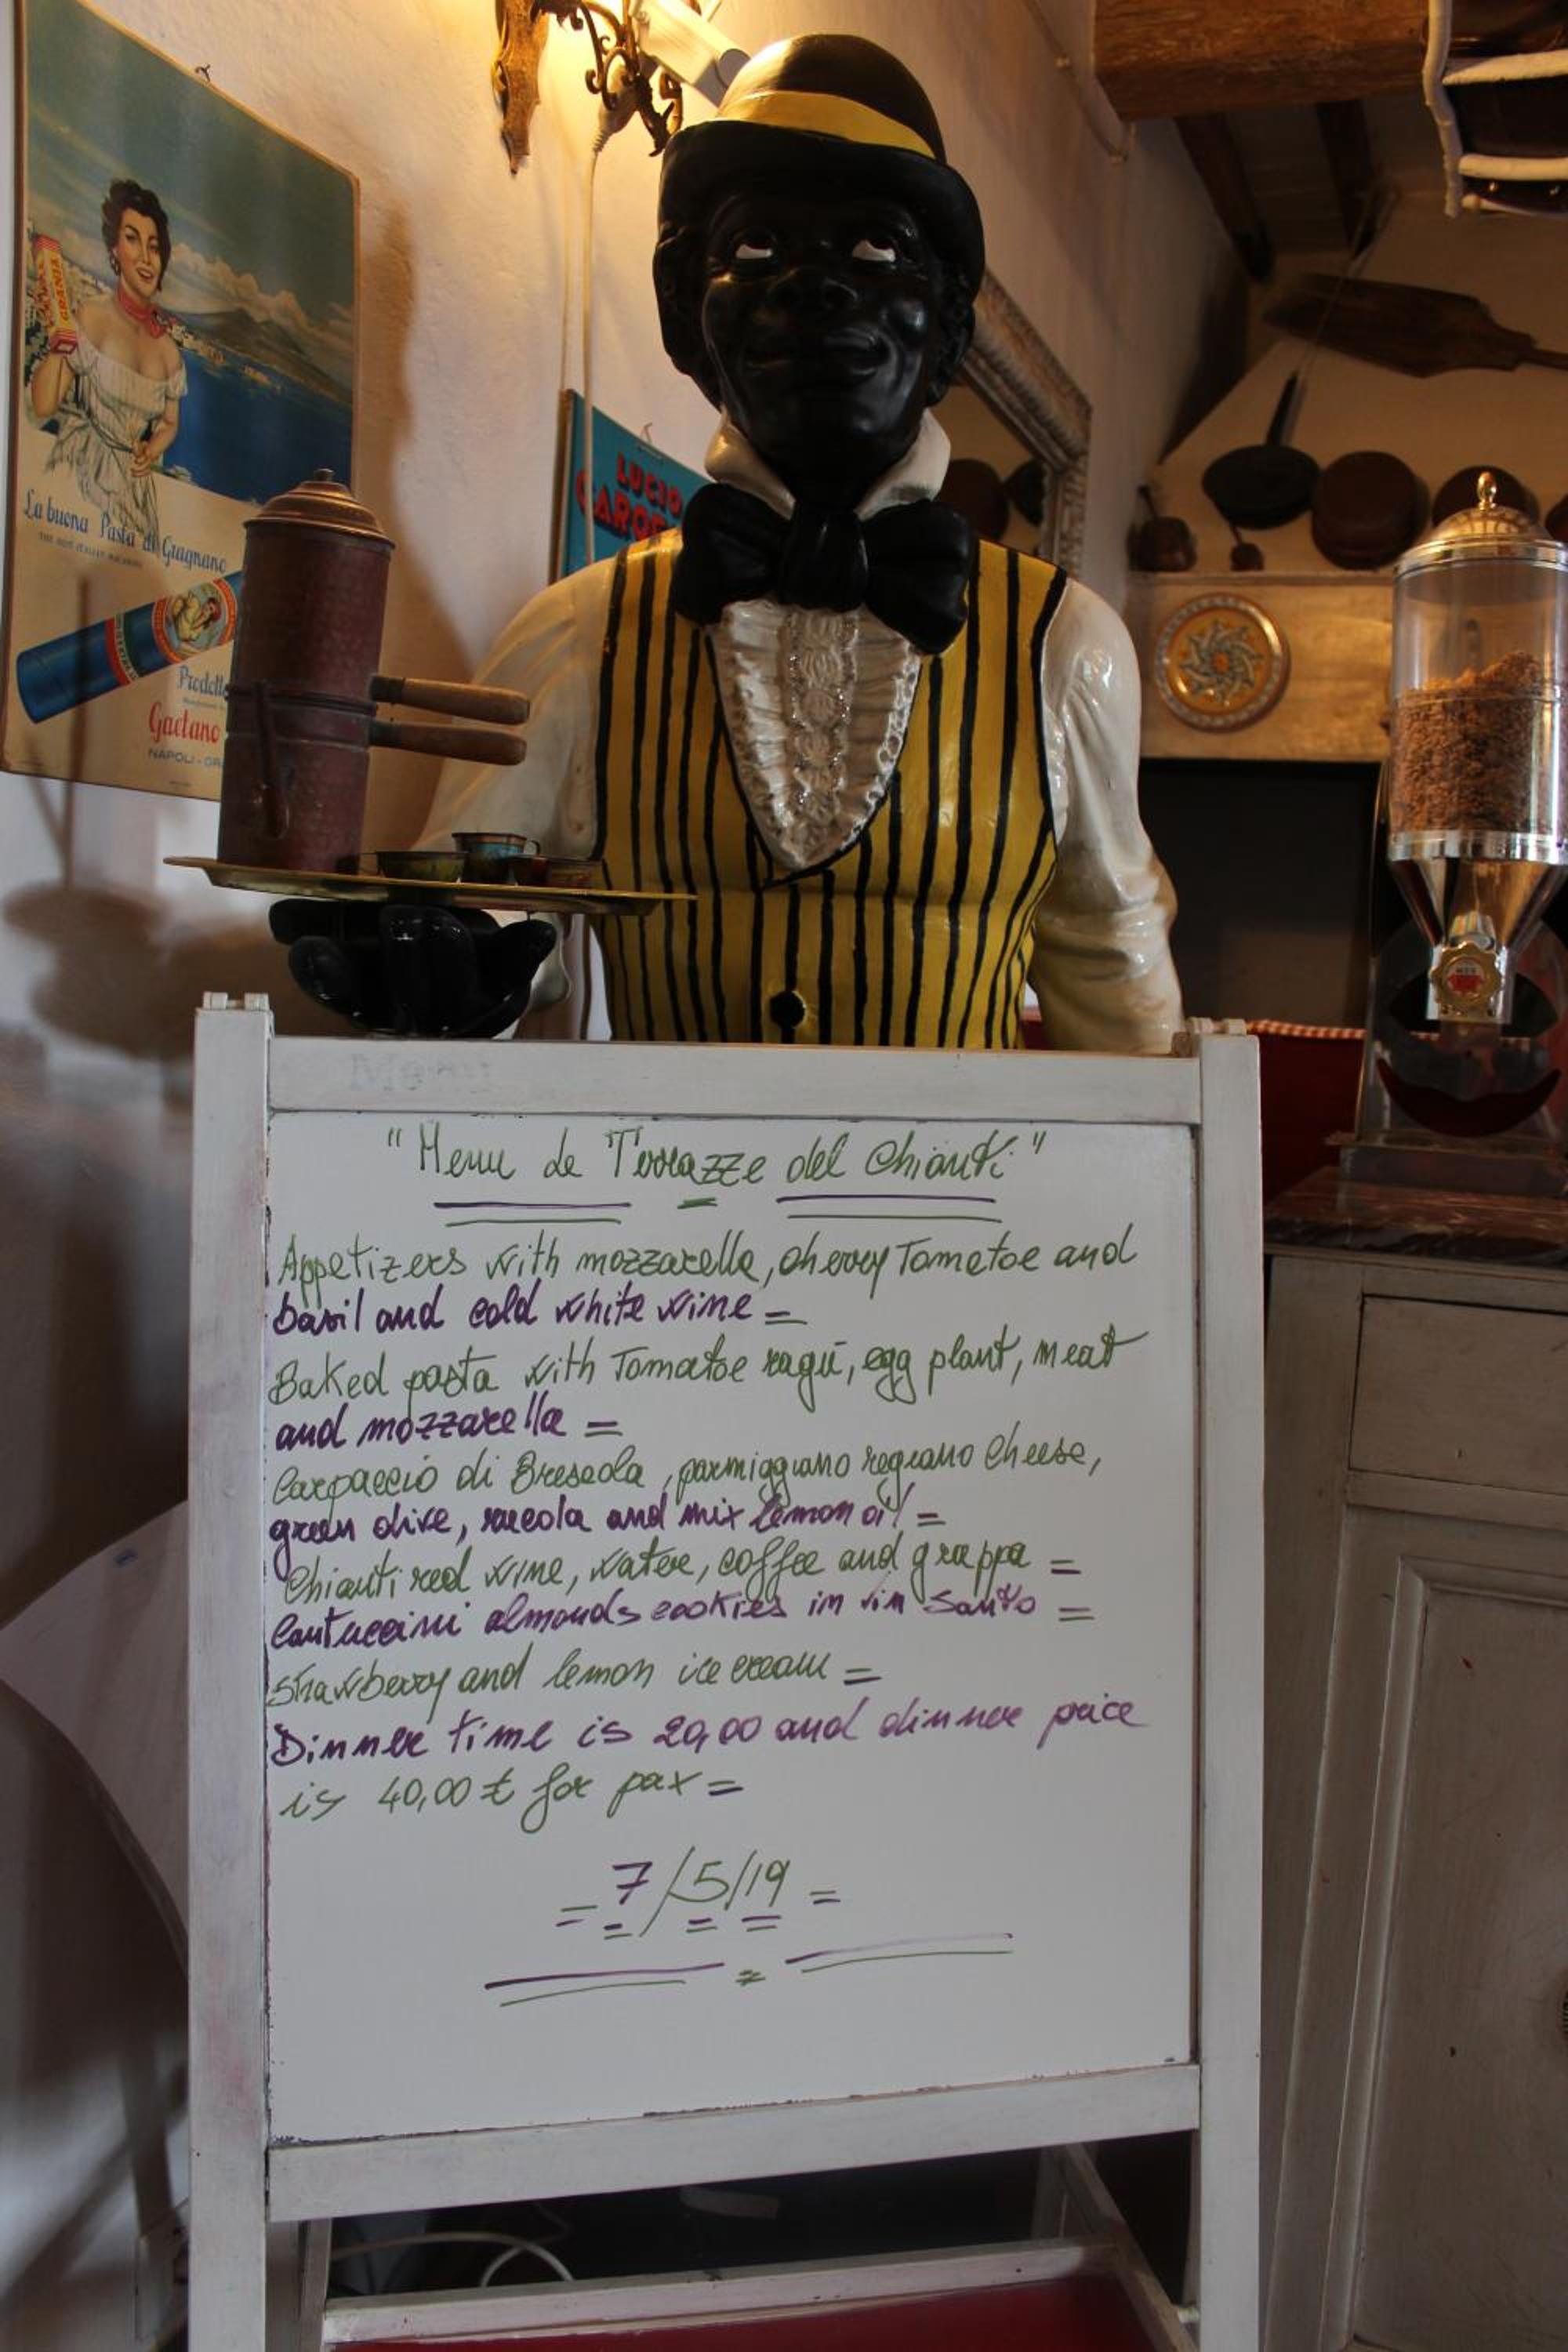 GRANIA
La buona Pasta di Gragnano
Prodotto
Gaetano
NAPOLI - GR
LUCIO
GAROF
Menu
"Menu le Terrazze del Chianti"
Appetizers with mozzarella, cherry Tomatoe and
basil and cold white wine =
Baked pasta with Tomatoe ragú, egg plant, meat
and mozzarella =
Carpaccio di Breseola, parmiggiano regiano cheese,
green olive, rucola and mix lemon oil =
Chianti red wine, water, coffee and grappa =
Cantuccini almonds cookies in vin Santo =
Strawberry and lemon ice cream =
Dinner time is 20,00 and dinner price
is 40,00 € for pax =
= 7/5/19 =